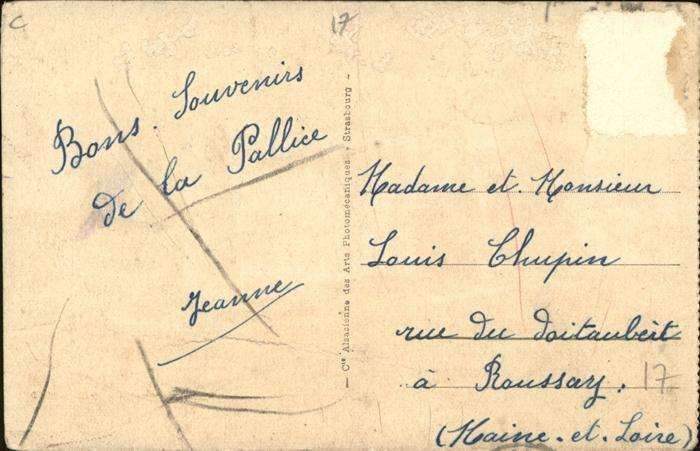 C
17
Bons Souvenirs
de la Pallice
Jeanne
— Cie Alsacienne des Arts Photomécaniques, Strasbourg —
Madame et Monsieur
Louis Chupin
rue du Doitaubert
à Roussay.
17
(Maine-et-Loire)